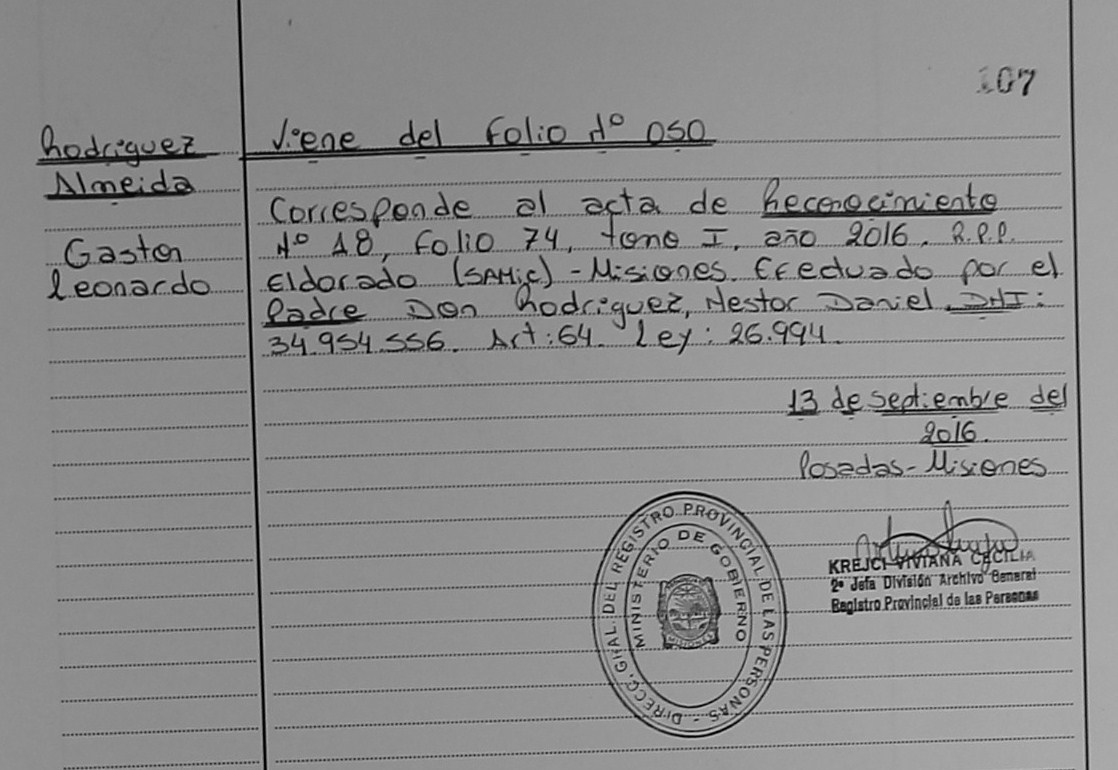 107
Rodriguez
Almeida
Gaston
Leonardo
Viene del Folio Nº 050
Corresponde al acta de Reconocimiento
Nº 18, Folio 74, tomo I, año 2016. R.P.P.
Eldorado (SAMiC) - Misiones. Efectuado por el
Padre Don Rodriguez, Nestor Daniel DNI:
34.954.556. Art: 64. Ley: 26.994.
13 de septiembre del
2016.
Posadas - Misiones
DIRECC. GRAL. DEL REGISTRO PROVINCIAL DE LAS PERSONAS -
MINISTERIO DE GOBIERNO
KREJCI VIVIANA CECILIA
2º Jefa División Archivo General
Registro Provincial de las Personas